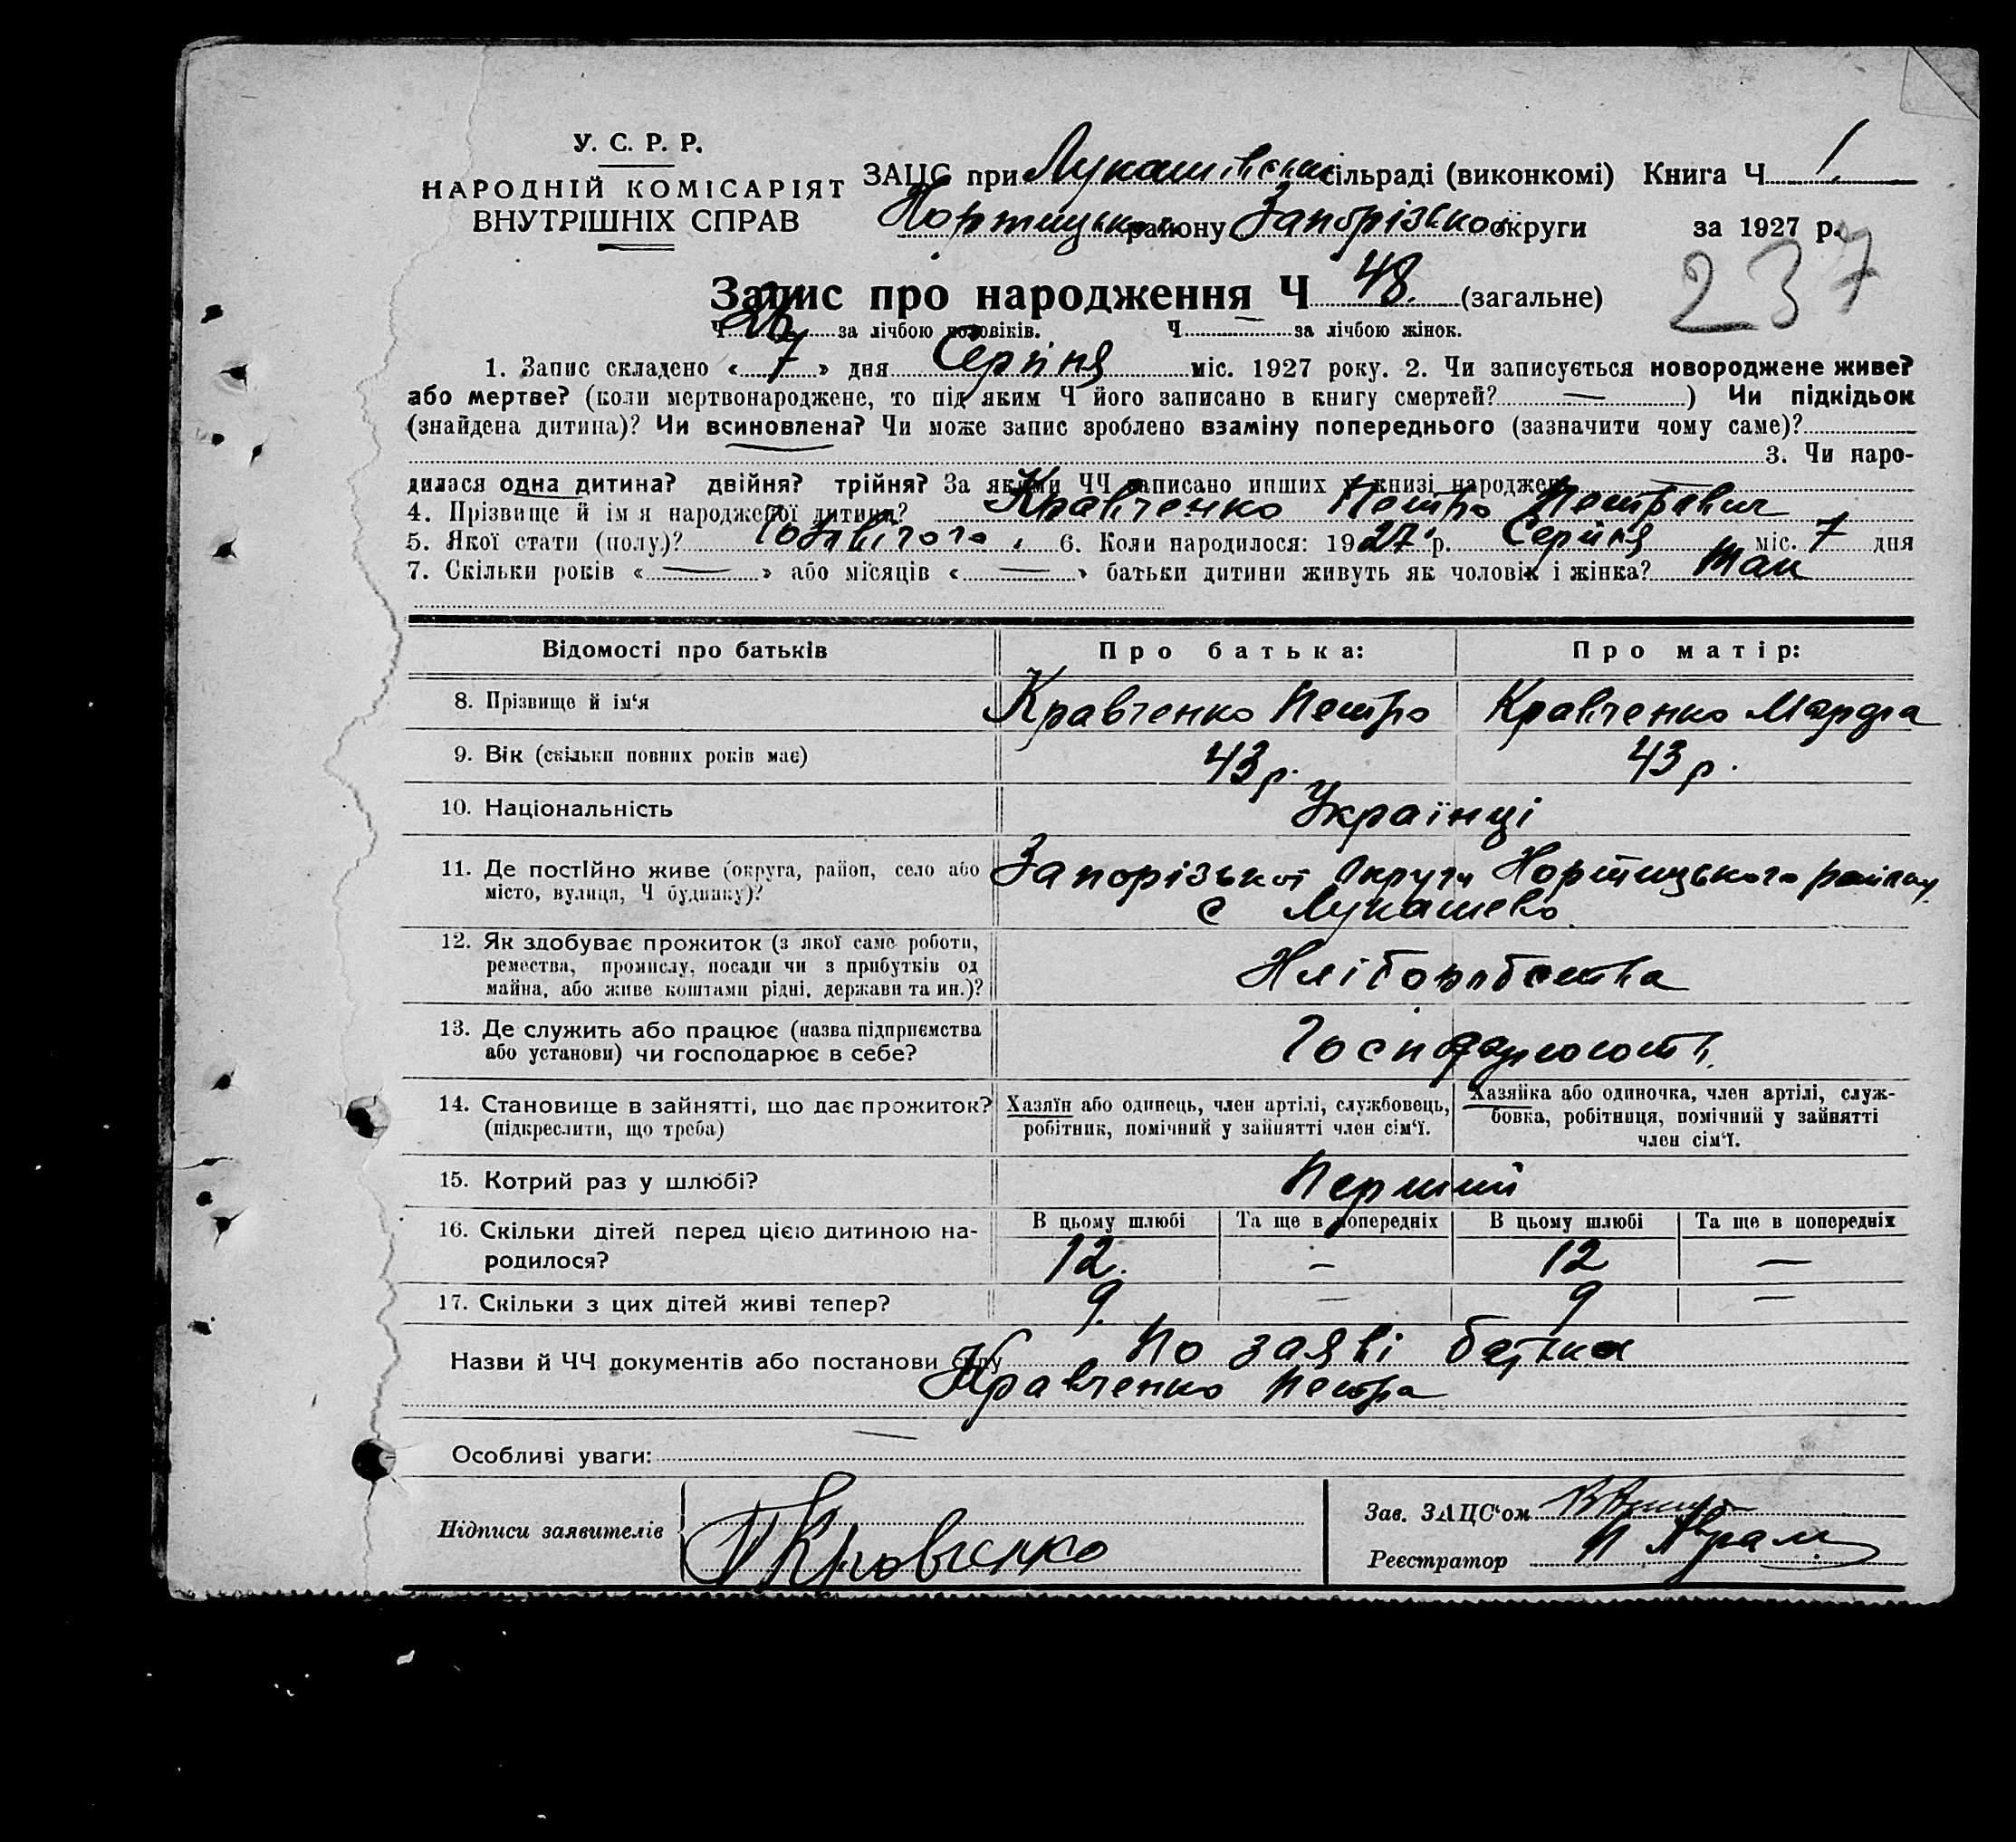 У. С. Р. Р.
НАРОДНІЙ КОМІСАРІЯТ
ВНУТРІШНІХ СПРАВ
ЗАЦС при Лукашівській сільраді (виконкомі) Книга Ч. 1
Хортицького району Запорізької округи за 1927 р.
237
Запис про народження Ч 48. (загальне)
Ч 26 за лічбою чоловіків. Ч — за лічбою жінок.
1. Запис складено « 7 » дня Серпня міс. 1927 року. 2. Чи записується новороджене живе?
або мертве? (коли мертвонароджене, то під яким Ч його записано в книгу смертей? — ) Чи підкідьок
(знайдена дитина)? Чи всиновлена? Чи може запис зроблено взаміну попереднього (зазначити чому саме)?
3. Чи наро-
дилася одна дитина? двійня? трійня? За якими ЧЧ записано инших у книзі народжен. —
4. Прізвище й ім я народженої дитини? Кравченко Петро Петрович
5. Якої стати (полу)? Чоловічого. 6. Коли народилося: 1927 р. Серпня міс. 7 дня
7. Скільки років « — » або місяців « — » батьки дитини живуть як чоловік і жінка? Так
Відомості про батьків Про батька: Про матір:
8. Прізвище й ім‘я Кравченко Петро Кравченко Марфа
9. Вік (скільки повних років має) 43 р. 43 р.
10. Національність Українці
11. Де постійно живе (округа, район, село або Запорізької Округи Хортицького району
місто, вулиця, Ч будинку)? с Лукашево
12. Як здобуває прожиток (з якої саме роботи,
ремества, промислу, посади чи з прибутків од Хліборобства
майна, або живе коштами рідні, держави та ин.)?
13. Де служить або працює (назва підприємства Господарюють
або установи) чи господарює в себе?
14. Становище в зайнятті, що дає прожиток? Хазяїн або одинець, член артілі, службовець, Хазяйка або одиночка, член артілі, служ-
(підкреслити, що треба) робітник, помічний у зайнятті член сім‘ї. бовка, робітниця, помічний у зайнятті
член сім‘ї.
15. Котрий раз у шлюбі? Перший
16. Скільки дітей перед цією дитиною на- В цьому шлюбі Та ще в попередніх В цьому шлюбі Та ще в попередніх
родилося? 12. — 12 —
17. Скільки з цих дітей живі тепер? 9. — 9 —
Назви й ЧЧ документів або постанови суду По заяві батька
Кравченко Петра
Особливі уваги: —
Підписи заявителів П Кравченко
Зав. ЗАЦС‘ом
Реєстратор